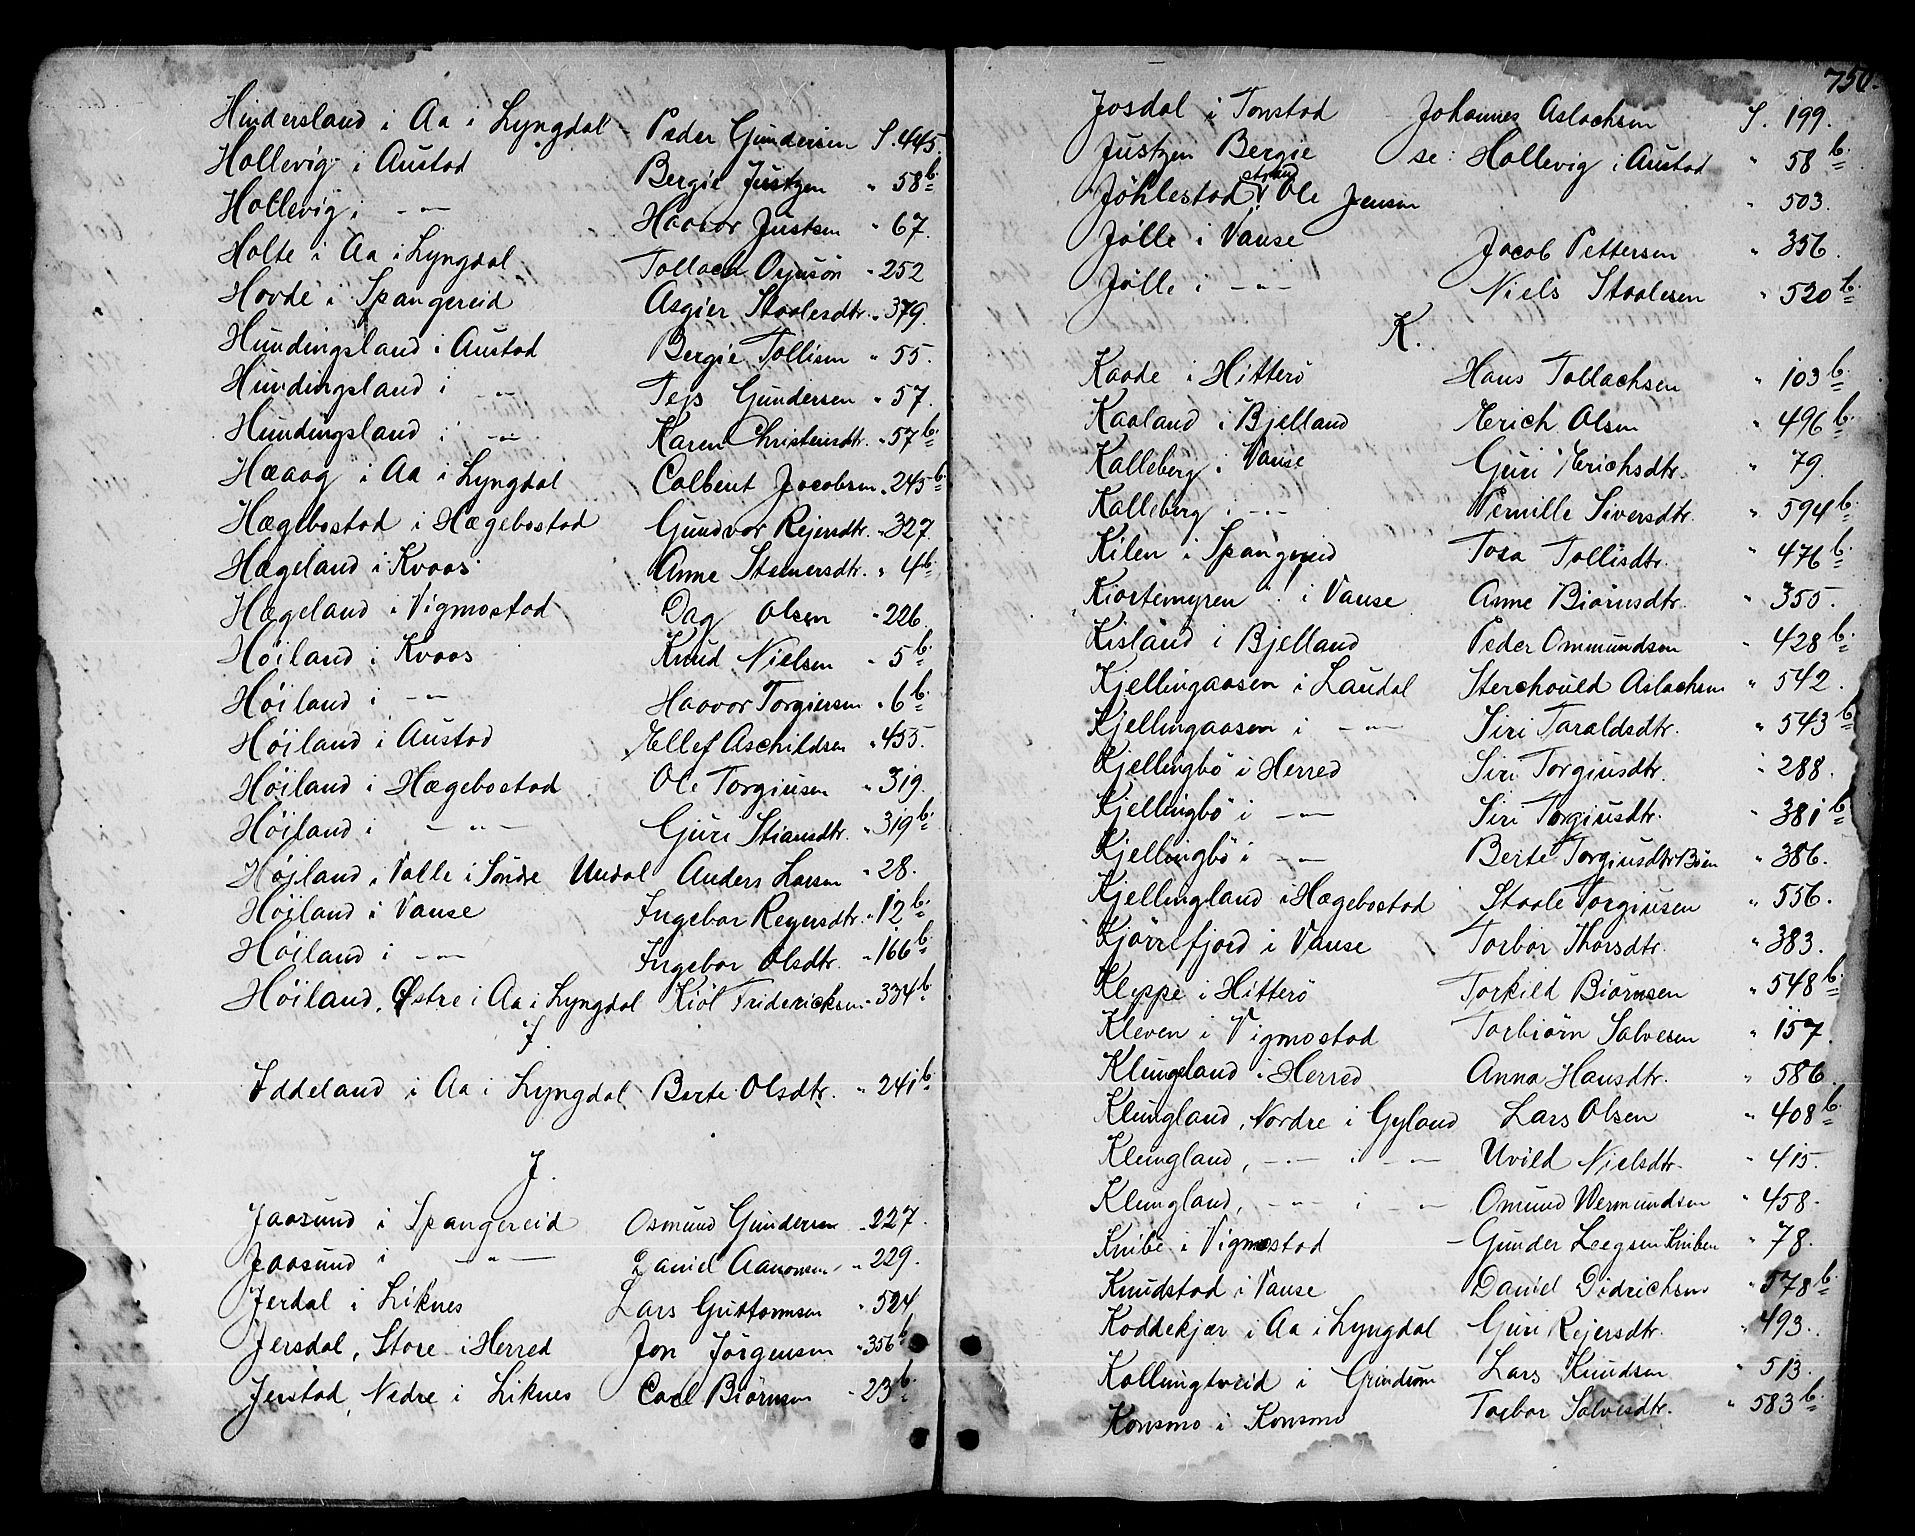 Hindersland i Aa i Lyngdal Peder Gundersen S. 445.
Hollevig i Austad Bergie Justzen " 58 b.
Hollevig i -"- Haavor Justsen " 67.
Holte i Aa i Lyngdal Tollach " 252
Hovde i Spangereid Asgier Staalesdtr. " 379.
Hundingsland i Austad Bergie Tollisen " 55.
Hundingsland i -"- Tejs Gundersen " 57.
Hundingsland i -"- Karen Christensdtr. " 57 b.
Hæaag i Aa i Lyngdal Colbent Jacobsen " 245 b.
Hægebostad i Hægebostad Gundvor Rejersdtr. " 327
Hægeland i Kvaas Anne Stenersdtr. " 4 b.
Hægeland i Vigmostad Dag Olsen " 226.
Höiland i Kvaas Knud Nielsen " 5 b.
Höiland i -"- Haavor Torgiersen " 6 b.
Höiland i Austad Ellef Aschildsen " 455.
Höiland i Hægebostad Ole Torgiusen " 319.
Höiland i -"- Guri Stiansdtr. " 319 b.
Höiland, Valle i Söndre Undal Anders Larsen " 28.
Höiland i Vanse Ingebor Reyersdtr. " 12 b.
Höiland i -"- Ingebor Olsdtr. " 166 b.
Höiland, Østre i Aa i Lyngdal Kiöl Fridericksen " 334 b.
I.
Iddeland i Aa i Lyngdal Berte Olsdtr. " 241 b.
J.
Jaasund i Spangereid Osmund Gundersen " 227.
Jaasund i -"- Daniel Aanonsen " 229.
Jerdal i Liknes Lars Guttormsen " 524
Jersdal, Store i Herred Jon Jörgensen " 356 b.
Jerstad, Nedre i Liknes Carl Biörnsen " 23 b.
750.
Josdal i Tonstad Johannes Aslachsen S. 199.
Justzen Bergie se: Hollevig i Austad " 58 b.
Jöhlestad strand Ole Jensen " 503.
Jölle i Vanse Jacob Pettersen " 356.
Jölle i -"- Niels Staalesen " 520 b.
K.
Kaade i Hitterö Hans Tollachsen " 103 b.
Kaaland i Bjelland Erich Olsen " 496 b.
Kalleberg i Vanse Guri Erichsdtr. " 79.
Kalleberg i -"- Pernille Siversdtr. " 594 b.
Kilen i Spangereid Tosa Tollisdtr. " 476 b.
Kiortemyren i Vanse Anne Biörnsdtr. " 355.
Kisland i Bjelland Peder Ommundsen " 428 b.
Kjellingaasen i Laudal Sterchould Aslachsen " 542.
Kjellingaasen i -"- Siri Taraldsdtr. " 543 b.
Kjellingbö i Herred Siri Torgiusdtr. " 288.
Kjellingbö i -"- Siri Torgiusdtr. " 381 b.
Kjellingbö i -"- Berte Torgiusdtr Böen " 386.
Kjellingland i Hægebostad Staale Torgiusen " 556.
Kjörrefjord i Vanse Torbor Thorsdtr. " 383.
Kleppe i Hitterö Torkild Biörnsen " 548 b.
Kleven i Vigmostad Torbiörn Salvesen " 157.
Klungland i Herred Anna Hansdtr. " 586.
Klungland, Nordre i Gyland Lars Olsen " 408 b.
Klungland, -"- i -"- Uvild Nielsdtr. " 415.
Klungland, -"- i -"- Omund Vermundsen " 458.
Knibe i Vigmostad Gunder Leegsen Kniben " 78.
Knudstad i Vanse David Didrichsen " 578 b.
Koddekjær i Aa i Lyngdal Guri Rejersdtr. " 493.
Kollungtveid i Grindum Lars Knudsen " 513.
Konsmo i Konsmo Torbor Salvesdtr. " 583 b.